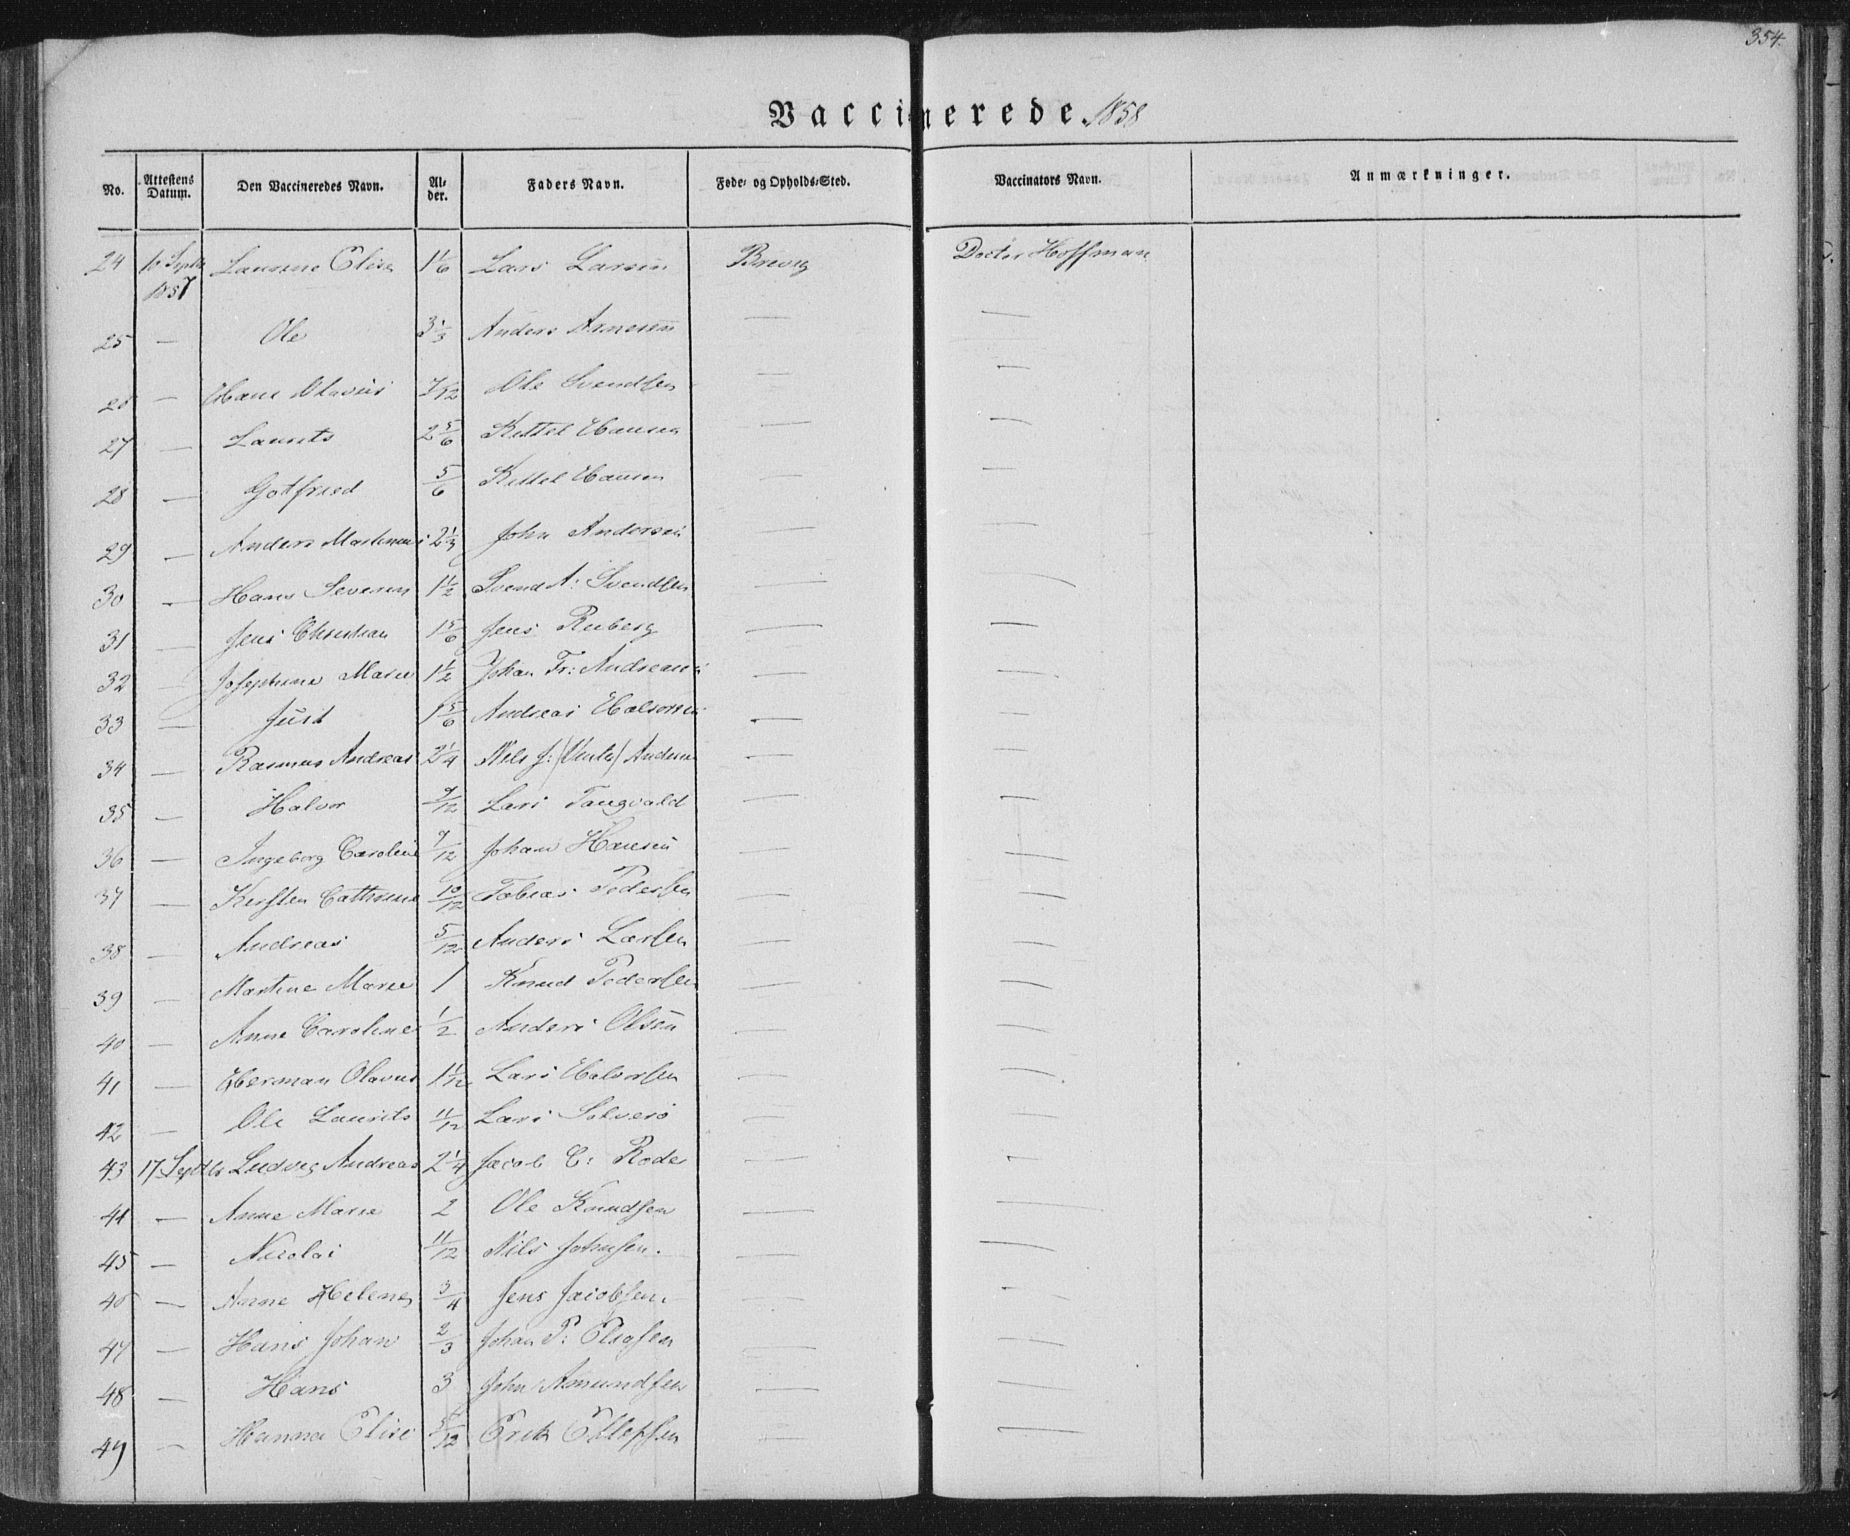 354.
Vaccinerede 1858
No. Attestens Datum. Den Vaccineredes Navn. Al-der. Faders Navn. Føde- og Opholds-Sted. Vaccinators Navn. Anmærkninger.
24 16 Septb 1857 Laurine Elise 1 1/6 Lars Larsen Brevig Doctor Hoffman
25 — Ole 3 1/3 Anders Arnesen — —
26 — Hans Olavus 7/12 Ole Svendsen — —
27 — Laurits 2 5/6 Kittel Hansen — —
28 — Gotfried 5/6 Kittel Hansen — —
29 — Anders Martinius 2 1/3 John Andersen — —
30 — Hans Severin 1 1/2 Svend A: Svendsen — —
31 — Jens Christian 1 5/6 Jens Ruberg — —
32 — Josephine Marie 1 1/2 Johan Fr: Andreasen — —
33 — Just 1 5/6 Andreas Halvorsen — —
34 — Rasmus Andreas 2 1/4 Nils J: Andersen — —
35 — Halvor 9/12 Lars Tangvald — —
36 — Ingeborg Caroline 7/12 Johan Hansen — —
37 — Kirsten Cathrine 10/12 Tobias Pedersen — —
38 — Andreas 5/12 Anders Larsen — —
39 — Martine Marie 1 Knud Pedersen — —
40 — Anne Caroline 1/2 Anders Olsen — —
41 — Herman Olavus 1 1/12 Lars Halvorsen — —
42 — Ole Laurits 11/12 Lars Solverø — —
43 17 Septbr Ludvig Andreas 2 1/4 Jacob C: Roder — —
44 — Anne Marie 2 Ole Knudsen — —
45 — Nicolai 11/12 Nils Johnsen. — —
46 — Anne Helene 3/4 Jens Jacobsen. — —
47 — Hans Johan 2/3 Johan P: — —
48 — Hans 3 John Amundsen — —
49 — Hanna Elise 5/12 Erik Ellefsen — —